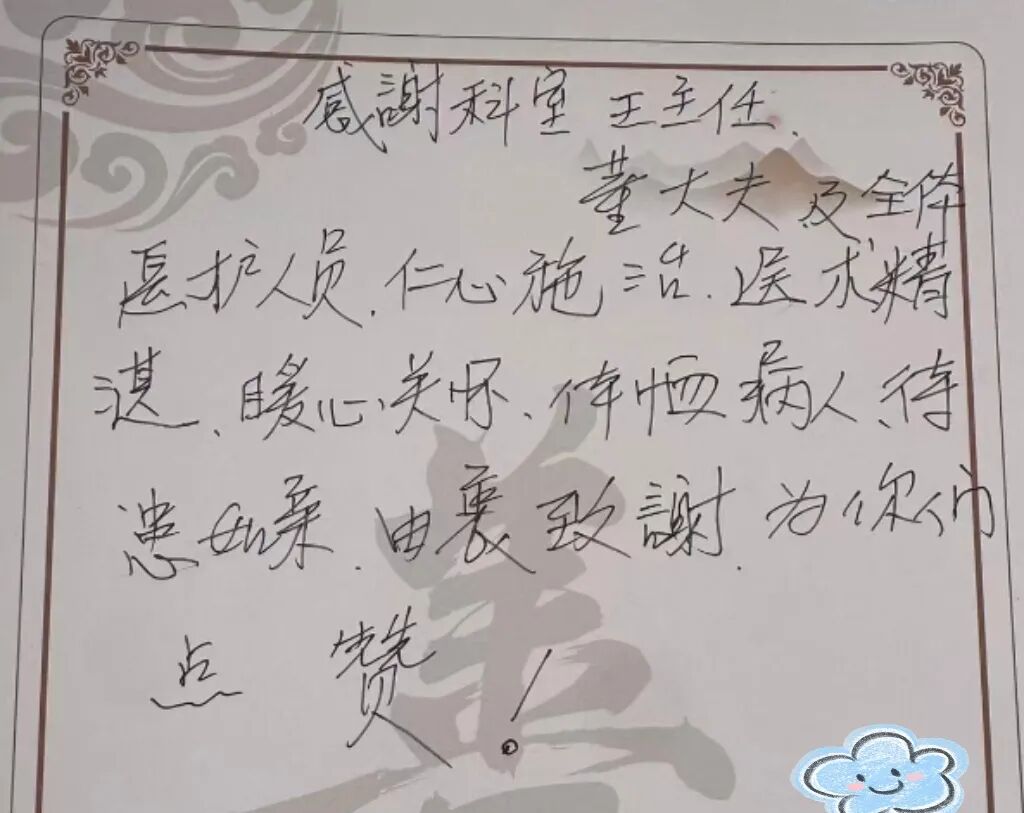 感謝科室 王主任、
董大夫 及全体
医护人员.仁心施治.医术精
湛、暖心关怀、体恤病人、待
患如亲.由衷致謝.为你们
点 赞！